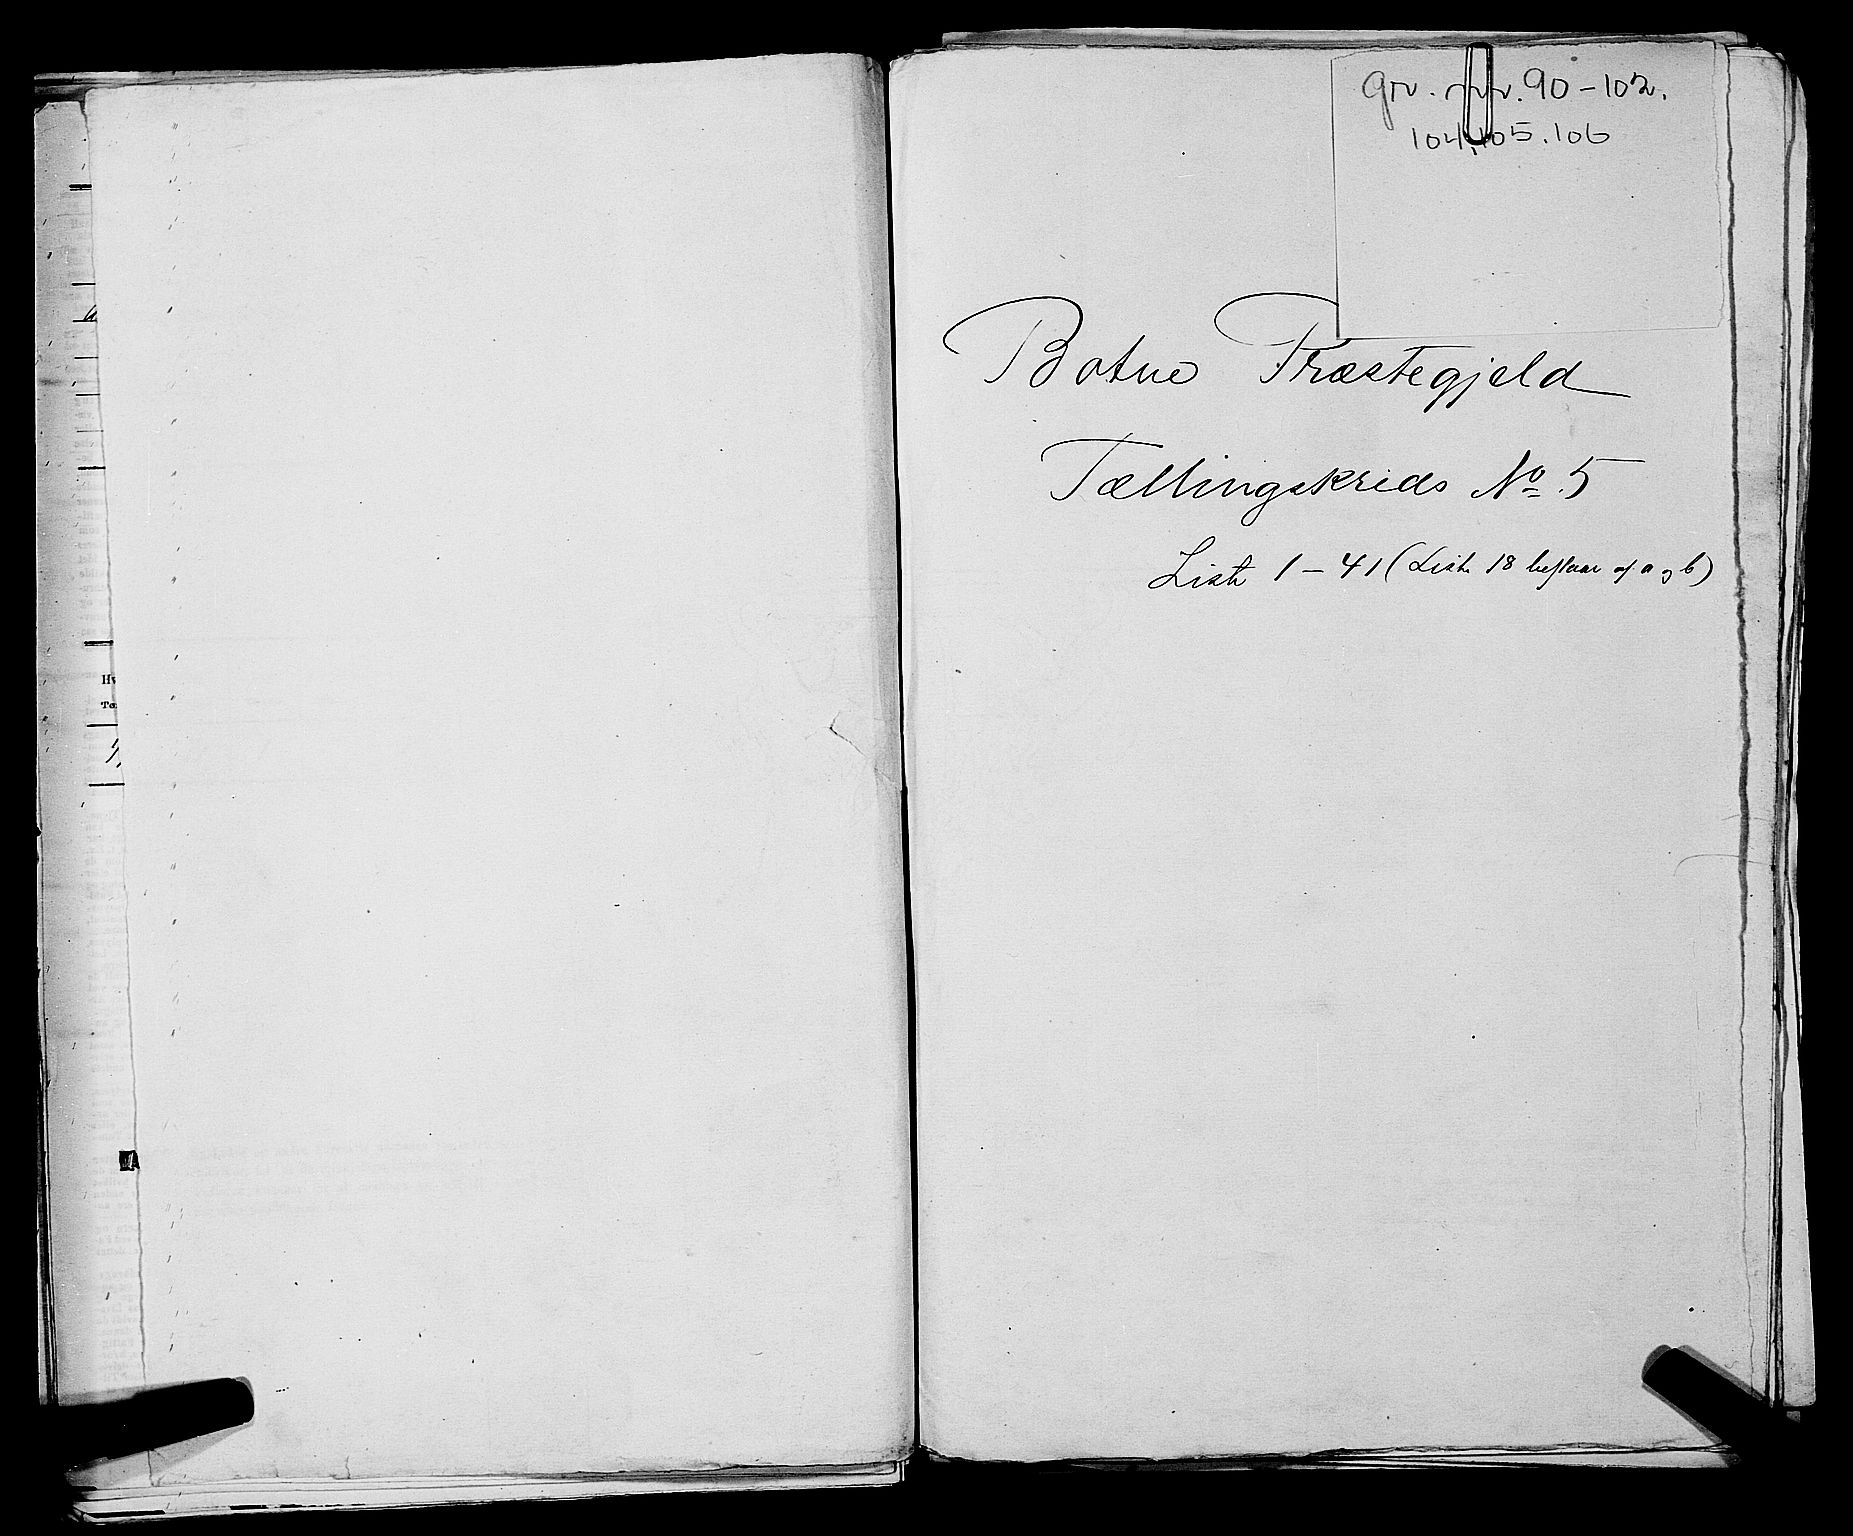 grv. nr. 90-102.
104, 105. 106
Botne Præstegjeld
Tællingskreds No. 5
Liste 1-41 (Liste 18 bestaar af a og b)